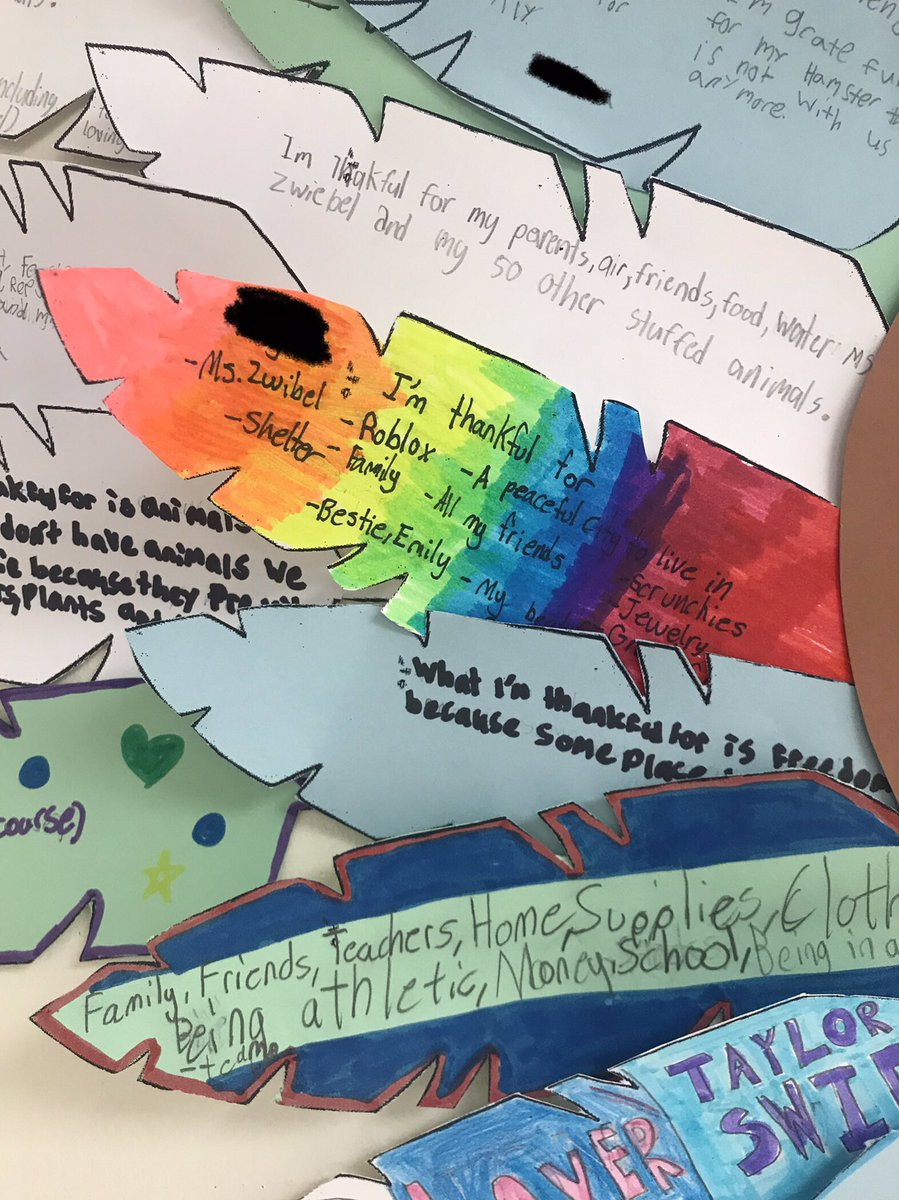 m grateful
for my Hamster
is not with us
anymore.
including
loving
Im Thakful for my parents, air, friends, food, water, Ms
Zwiebel and my 50 other stuffed animals.
I'm thankful for
-Ms. Zwibel -Roblox -A peaceful city to live in
-Shelter -Family -All my friends -Scrunchies
-Bestie, Emily -My -Jewelry
for is animals
don't have animals we
because they
plants
What I'm thankful for is Freedom
because some place
course)
Family, Friends, Teachers, Home, Supplies, Cloth
Being athletic, Money, School, Being in a
-team
TAYLOR
SWIF